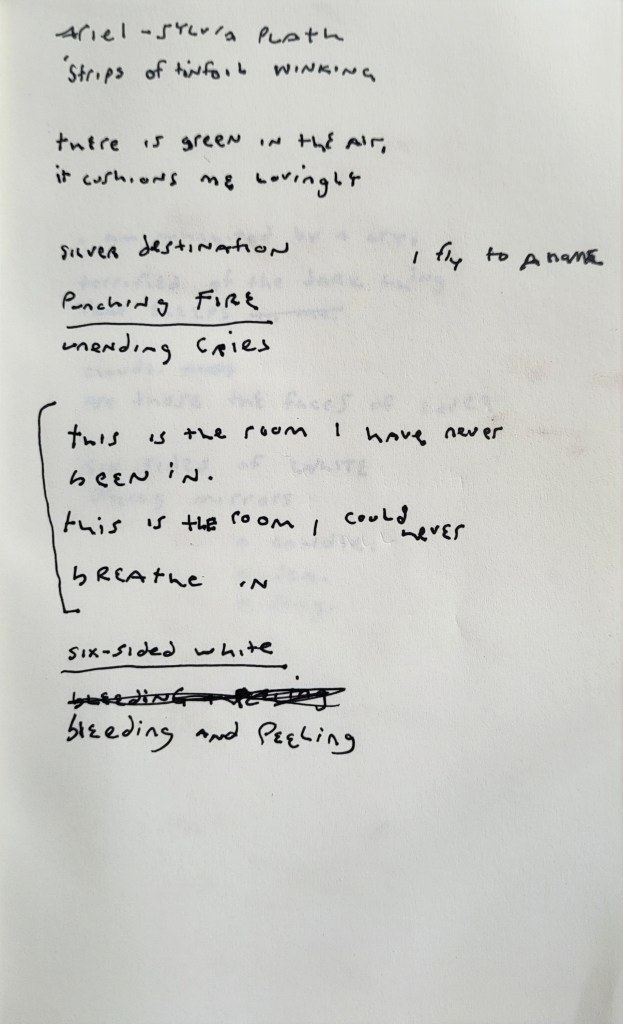 Ariel - Sylvia Plath
'Strips of tinfoil winking
there is green in the air,
it cushions me lovingly
silver destination
I fly to a name
Punching Fire
unending cries
this is the room I have never
been in.
this is the room I could never
breathe in
six-sided white
bleeding + peeling
bleeding and peeling